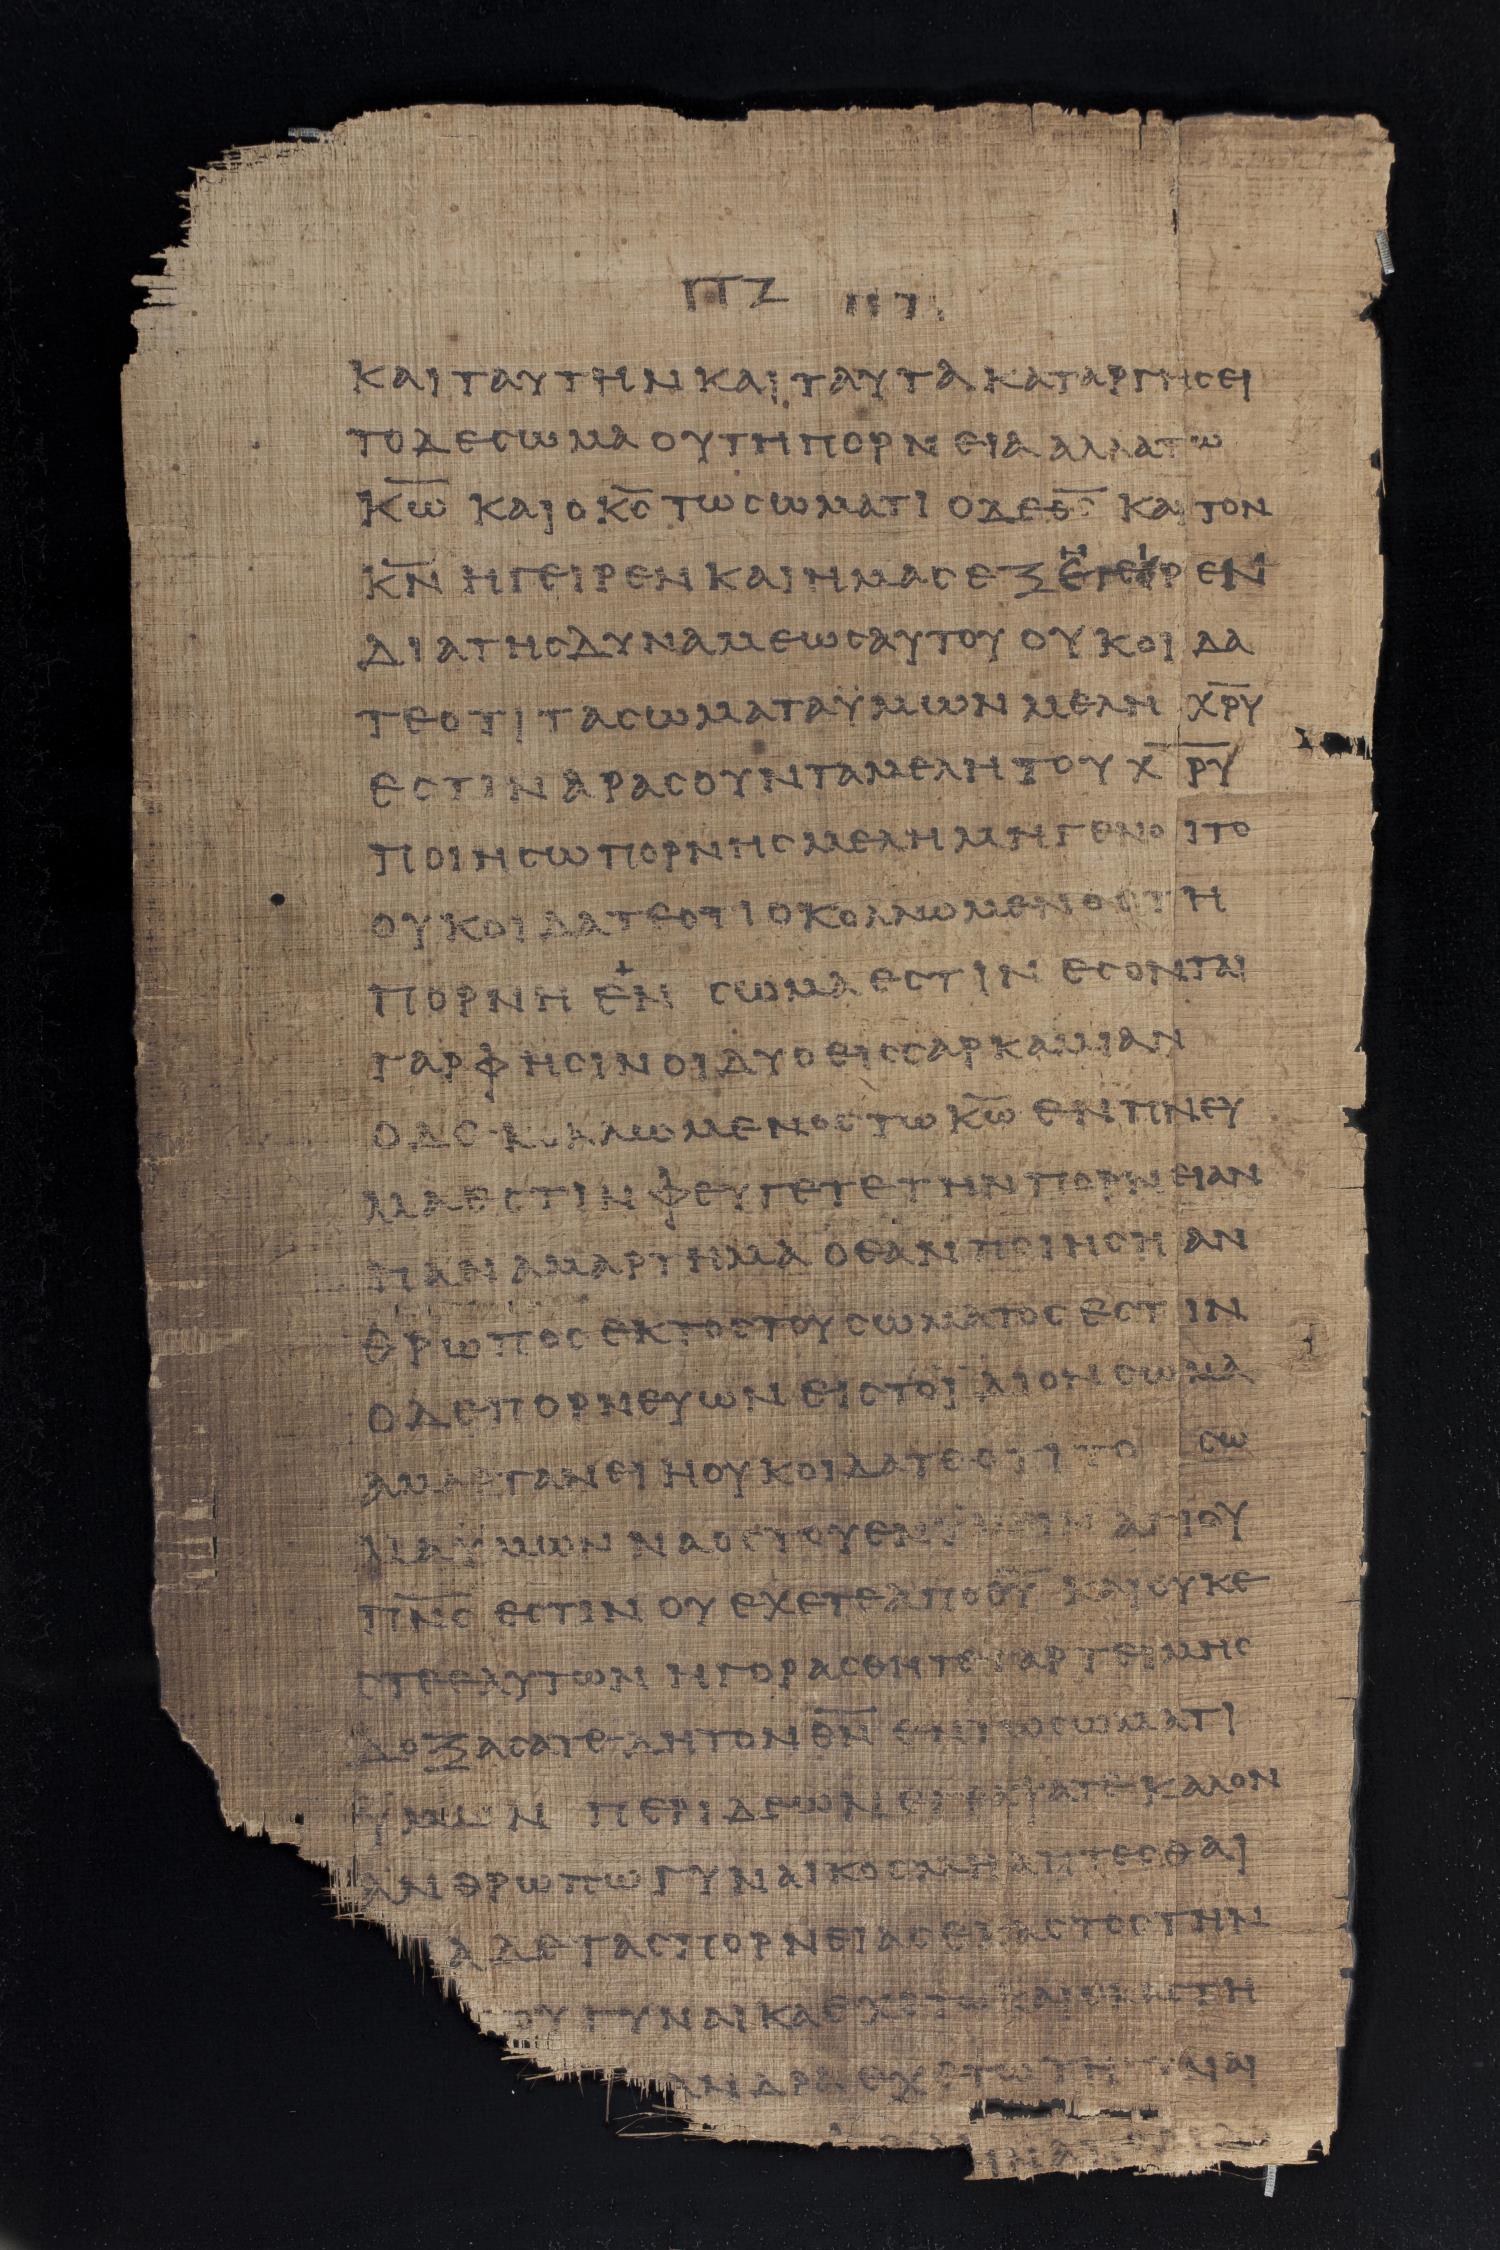 ΠΖ
ΚΑΙ ΤΑΥΤΗΝ ΚΑΙ ΤΑΥΤΑ ΚΑΤΑΡΓΗСΕΙ
ΤΟ ΔΕ СΩΜΑ ΟΥ ΤΗ ΠΟΡΝΕΙΑ ΑΛΛΑ ΤΩ
Κ̅Ω̅ ΚΑΙ Ο Κ̅С̅ ΤΩ СΩΜΑΤΙ Ο ΔΕ Θ̅С̅ ΚΑΙ ΤΟΝ
Κ̅Ν̅ ΗΓΕΙΡΕΝ ΚΑΙ ΗΜΑС
ΔΙΑ ΤΗС ΔΥΝΑΜΕΩС ΑΥΤΟΥ ΟΥΚ ΟΙΔΑ
ΤΕ ΟΤΙ ΤΑ СΩΜΑΤΑ ΥΜΩΝ ΜΕΛΗ Χ̅Ρ̅Υ̅
ΕСΤΙΝ ΑΡΑС ΟΥΝ ΤΑ ΜΕΛΗ ΤΟΥ Χ̅Ρ̅Υ̅
ΠΟΙΗСΩ ΠΟΡΝΗС ΜΕΛΗ ΜΗ ΓΕΝΟΙΤΟ
ΟΥΚ ΟΙΔΑΤΕ ΟΤΙ Ο ΚΟΛΛΩΜΕΝΟС ΤΗ
ΠΟΡΝΗ ΕΝ СΩΜΑ ΕСΤΙΝ ΕСΟΝΤΑΙ
ΓΑΡ ΦΗСΙΝ ΟΙ ΔΥΟ ΕΙС СΑΡΚΑ ΜΙΑΝ
Ο ΔΕ ΚΟΛΛΩΜΕΝΟС ΤΩ Κ̅Ω̅ ΕΝ ΠΝΕΥ
ΜΑ ΕСΤΙΝ ΦΕΥΓΕΤΕ ΤΗΝ ΠΟΡΝΕΙΑΝ
ΠΑΝ ΑΜΑΡΤΗΜΑ Ο ΕΑΝ ΠΟΙΗСΗ ΑΝ
ΘΡΩΠΟС ΕΚΤΟС ΤΟΥ СΩΜΑΤΟС ΕСΤΙΝ
Ο ΔΕ ΠΟΡΝΕΥΩΝ ΕΙС ΤΟ ΙΔΙΟΝ СΩΜΑ
ΑΜΑΡΤΑΝΕΙ Η ΟΥΚ ΟΙΔΑΤΕ ΟΤΙ ΤΟ СΩ
ΜΑ ΥΜΩΝ ΝΑΟС ΤΟΥ ΕΝ ΥΜΙΝ ΑΓΙΟΥ
Π̅Ν̅С̅ ΕСΤΙΝ ΟΥ ΕΧΕΤΕ ΑΠΟ Θ̅Υ̅ ΚΑΙ ΟΥΚ Ε
СΤΕ ΕΑΥΤΩΝ ΗΓΟΡΑСΘΗΤΕ ΓΑΡ ΤΕΙΜΗС
ΔΟΞΑСΑΤΕ ΔΗ ΤΟΝ Θ̅Ν̅ ΕΝ ΤΩ СΩΜΑΤΙ
ΥΜΩΝ ΠΕΡΙ ΔΕ ΩΝ ΕΓΡΑΨΑΤΕ ΚΑΛΟΝ
ΑΝΘΡΩΠΩ ΓΥΝΑΙΚΟС ΜΗ ΑΠΤΕСΘΑΙ
ΔΕ ΤΑС ΠΟΡΝΕΙΑС ΕΚΑСΤΟС ΤΗΝ
ΓΥΝΑΙΚΑ ΕΧΕΤΩ ΚΑΙ ΕΚΑСΤΗ
ΑΝΔΡΑ ΕΧΕΤΩ ΤΗ ΓΥΝΑΙ